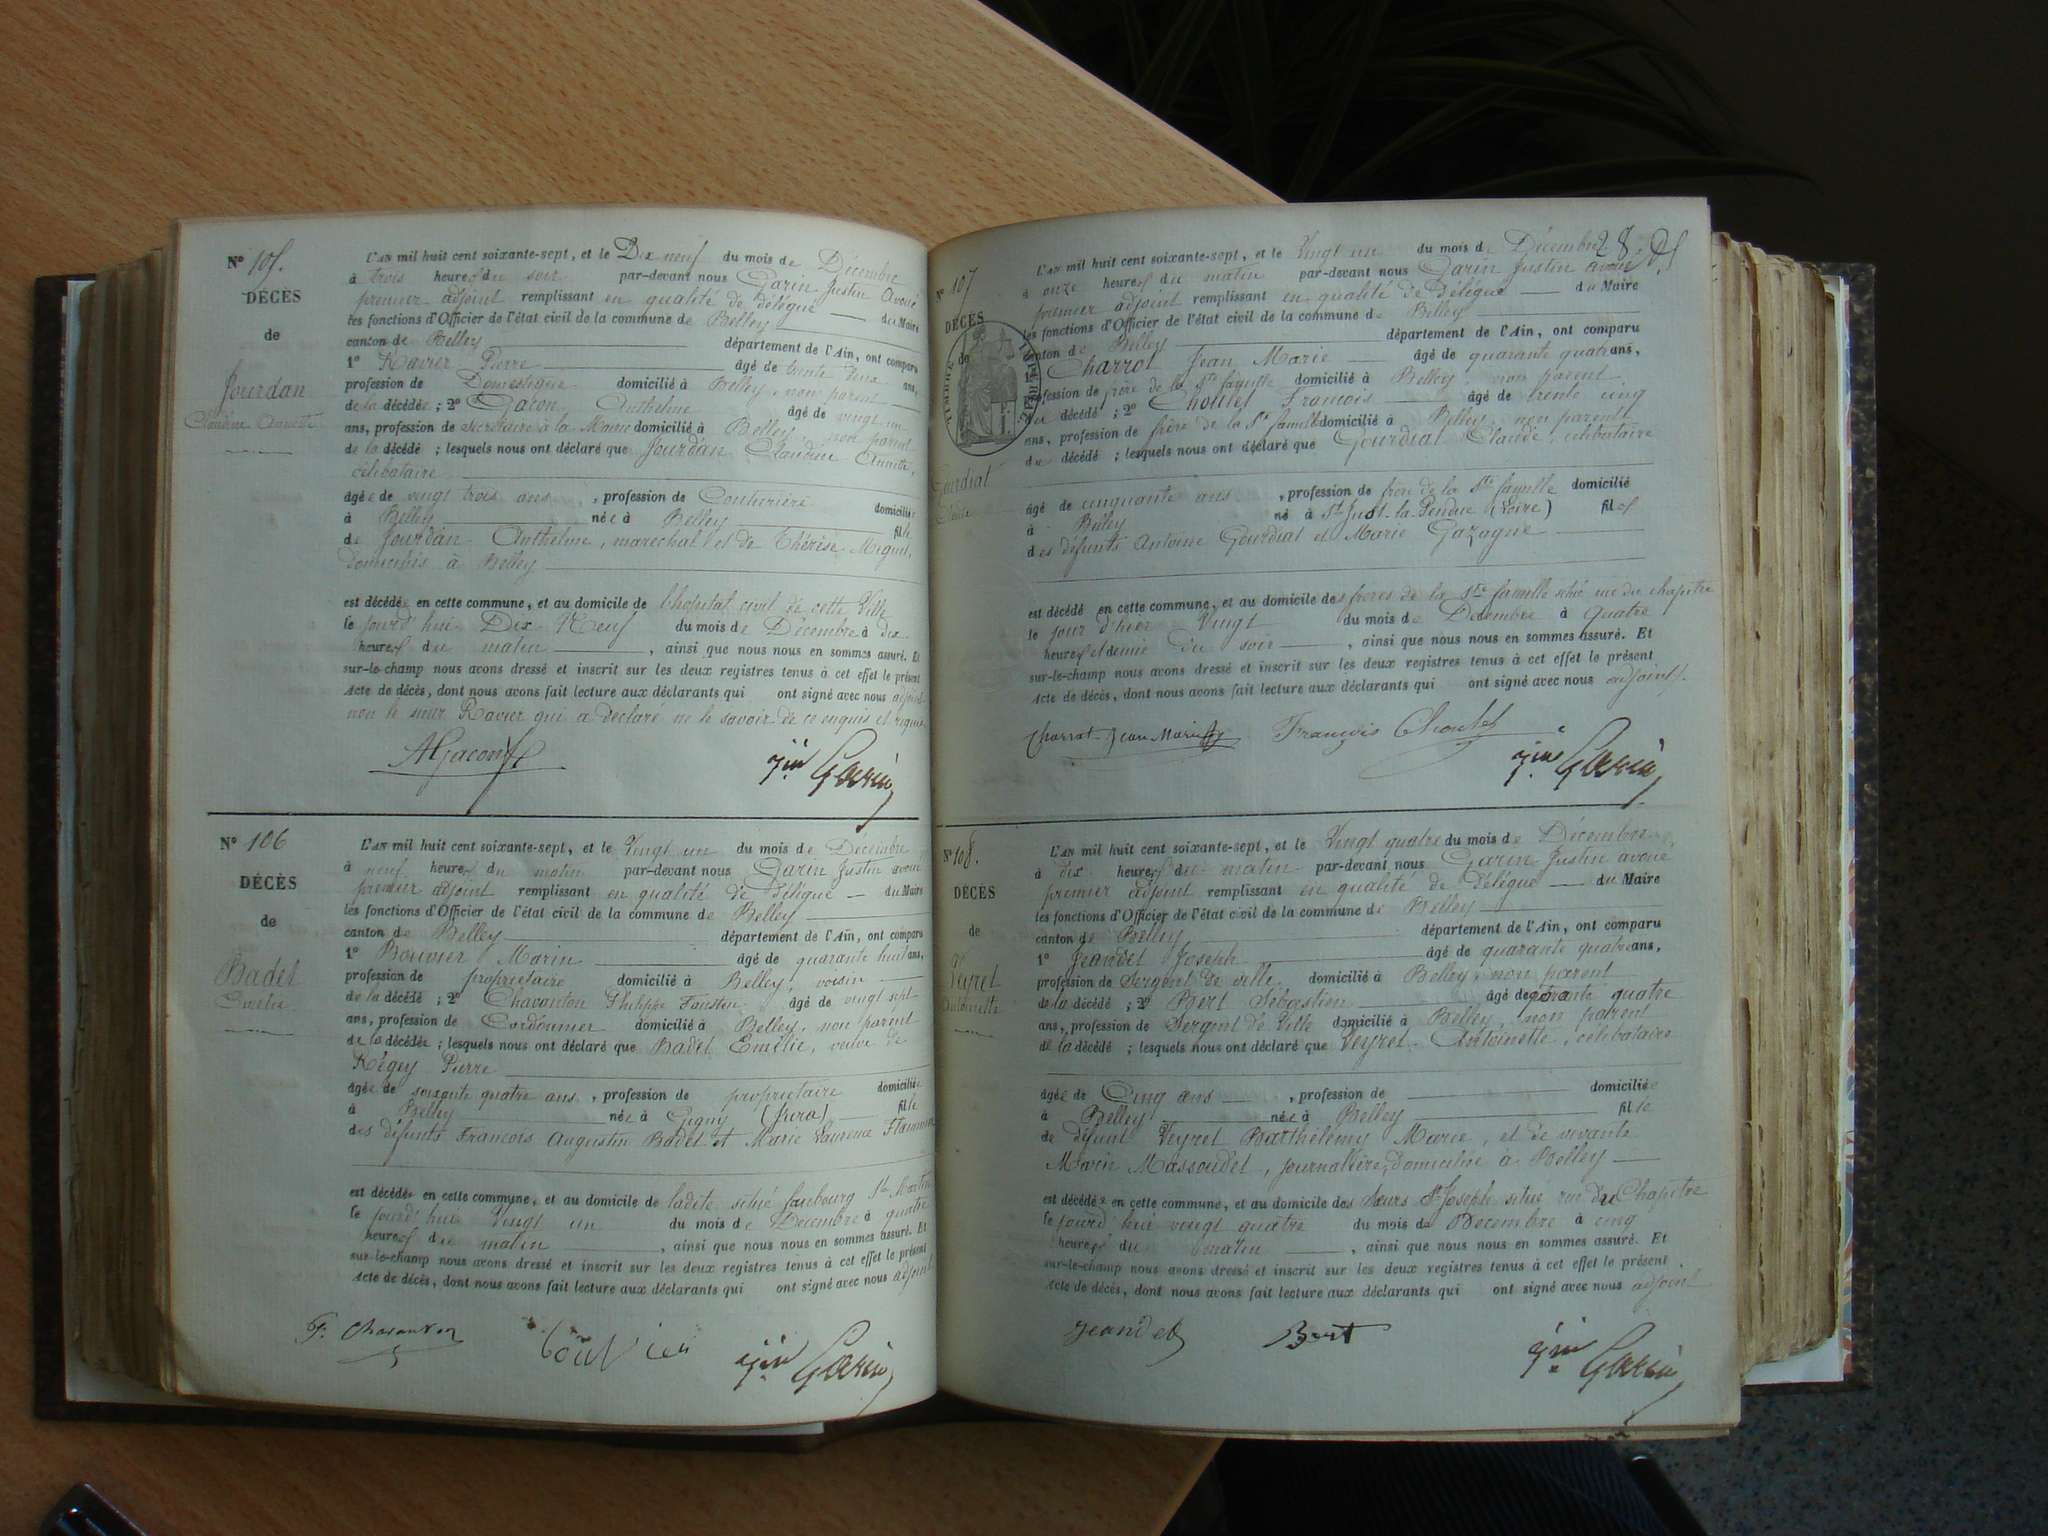 N° 105.
DÉCÈS
de
Jourdan
Claudine Annette
L'AN mil huit cent soixante-sept, et le Dix neuf du mois de Décembre
à trois heures du soir par-devant nous Garin Justin avoué
premier adjoint remplissant en qualité de délégué du Maire
les fonctions d'Officier de l'état civil de la commune de Belley
canton de Belley département de l'Ain, ont comparu
1° Ravier Pierre âgé de trente deux ans,
profession de Domestique domicilié à Belley, non parent
de la décédée ; 2° Gacon Anthelme âgé de vingt un
ans, profession de secrétaire à la Mairie domicilié à Belley, non parent
de la décédé ; lesquels nous ont déclaré que Jourdan Claudine Annette,
célibataire
âgée de vingt trois ans , profession de Couturière domiciliée
à Belley née à Belley fille
de Jourdan Anthelme, maréchal et de Thérèse
domiciliés à Belley
est décédée en cette commune, et au domicile de l'hopital civil de cette Ville
le jourd'hui Dix Neuf du mois de Décembre à dix
heures du matin , ainsi que nous nous en sommes assuré. Et
sur-le-champ nous avons dressé et inscrit sur les deux registres tenus à cet effet le présent
acte de décès, dont nous avons fait lecture aux déclarants qui ont signé avec nous adjoint
non le sieur Ravier qui a déclaré ne le savoir de ce enquis et requis
AGacon jin Garin
N° 106
DÉCÈS
de
Badet
Emélie
L'AN mil huit cent soixante-sept, et le Vingt un du mois de Décembre
à neuf heures du matin par-devant nous Garin Justin avoué
premier adjoint remplissant en qualité de délégué du Maire
les fonctions d'Officier de l'état civil de la commune de Belley
canton de Belley département de l'Ain, ont comparu
1° Bouvier Marin âgé de quarante huit ans,
profession de propriétaire domicilié à Belley, voisin
de la décédé ; 2° Chavanton Philippe Faustin âgé de vingt sept
ans, profession de Cordonnier domicilié à Belley, non parent
de la décédée ; lesquels nous ont déclaré que Badet Emélie, veuve de
Régey Pierre
âgée de soixante quatre ans , profession de propriétaire domiciliée
à Belley née à Gigny (Jura) fille
des défunts François Augustin Badet et Marie Laurence
est décédée en cette commune, et au domicile de ladite situé faubourg St Martin
le jourd'hui vingt un du mois de Décembre à quatre
heures du matin , ainsi que nous nous en sommes assuré. Et
sur-le-champ nous avons dressé et inscrit sur les deux registres tenus à cet effet le présent
acte de décès, dont nous avons fait lecture aux déclarants qui ont signé avec nous adjoint
F. Chavanton bouvier jin Garin
28.
N° 107
DÉCÈS
de
TIMBRE IMPERIAL
Gourdiat
Claude
L'AN mil huit cent soixante-sept, et le Vingt un du mois de Décembre
à onze heures du matin par-devant nous Garin Justin avoué
premier adjoint remplissant en qualité de Délégué du Maire
les fonctions d'Officier de l'état civil de la commune de Belley
canton de Belley département de l'Ain, ont comparu
1° Charrot Jean Marie âgé de quarante quatre ans,
profession de frère de la Ste famille domicilié à Belley, non parent
du décédé ; 2° Choulet François âgé de trente cinq
ans, profession de frère de la Ste famille domicilié à Belley, non parent
du décédé ; lesquels nous ont déclaré que Gourdiat Claude, célibataire
âgé de cinquante ans , profession de frère de la Ste famille domicilié
à Belley né à St Just-la-Pendue (Loire) fils
des défunts Antoine Gourdiat et Marie Gazagne
est décédé en cette commune, et au domicile des frères de la Ste famille situé rue du chapitre
le jour d'hier Vingt du mois de Décembre à quatre
heures et demie du soir , ainsi que nous nous en sommes assuré. Et
sur-le-champ nous avons dressé et inscrit sur les deux registres tenus à cet effet le présent
acte de décès, dont nous avons fait lecture aux déclarants qui ont signé avec nous adjoint.
Charrot Jean Marie François Choulet
jin Garin
N° 108.
DÉCÈS
de
Veyret
Antoinette
L'AN mil huit cent soixante-sept, et le Vingt quatre du mois de Décembre
à dix heures du matin par-devant nous Garin Justin avoué
premier adjoint remplissant en qualité de délégué du Maire
les fonctions d'Officier de l'état civil de la commune de Belley
canton de Belley département de l'Ain, ont comparu
1° Jeandet Joseph âgé de quarante quatre ans,
profession de Sergent de ville domicilié à Belley, non parent
de la décédé ; 2° Bert Sébastien âgé de quatre
ans, profession de Sergent de Ville domicilié à Belley, non parent
de la décédé ; lesquels nous ont déclaré que Veyret Antoinette, célibataire
âgée de Cinq ans , profession de domiciliée
à Belley née à Belley fille
de défunt Veyret Barthélemy Marie, et de vivante
Marie Massoudet, journalière, domiciliée à Belley
est décédée en cette commune, et au domicile des Sœurs St Joseph situé rue du Chapitre
le jourd'hui vingt quatre du mois de Décembre à cinq
heures du matin , ainsi que nous nous en sommes assuré. Et
sur-le-champ nous avons dressé et inscrit sur les deux registres tenus à cet effet le présent
acte de décès, dont nous avons fait lecture aux déclarants qui ont signé avec nous adjoint
Jeandet Bert jin Garin